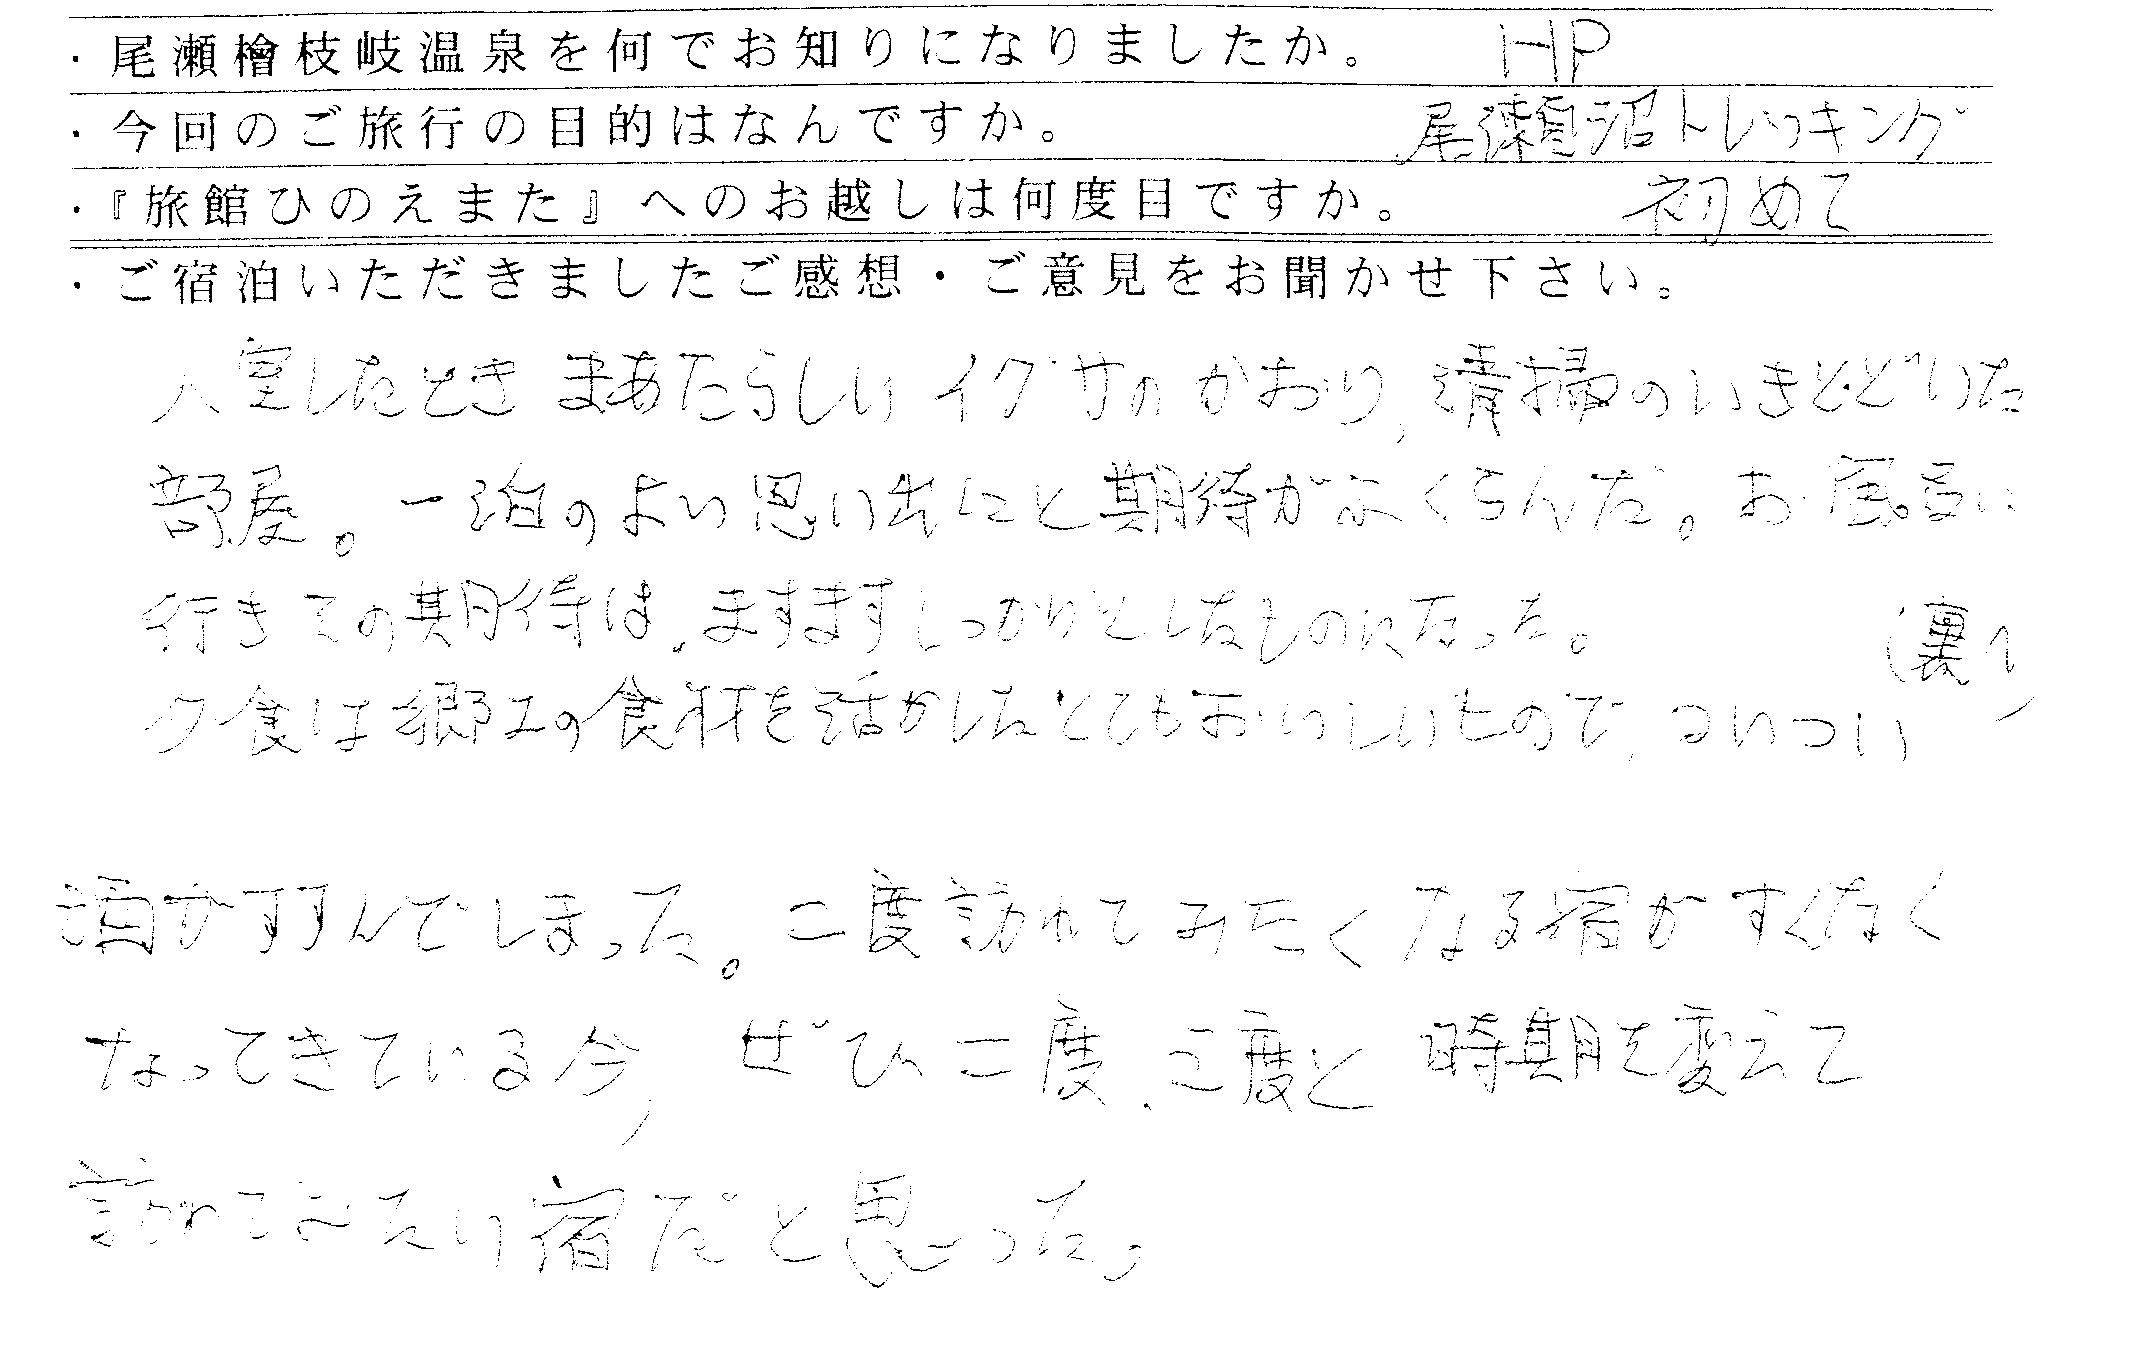 ・尾瀬檜枝岐温泉を何でお知りになりましたか。 HP
・今回のご旅行の目的はなんですか。 尾瀬沼トレッキング
・『旅館ひのえまた』へのお越しは何度目ですか。 初めて
・ご宿泊いただきましたご感想・ご意見をお聞かせ下さい。
入室したとき まあたらしい イグサの かおり, 清掃のいきとどいた
部屋。一泊のよい思い出にと期待がふくらんだ。お風呂に
行きその期待は、ますますしっかりとしたものになった。
(裏へ)
夕食は郷土の食材を活かしたとてもおいしいもので、ついつい
酒がすすんでしまった。二度訪れてみたくなる宿がすくなく
なってきている今, ぜひ二度、三度と時期を変えて
訪れてみたい宿だと思った。